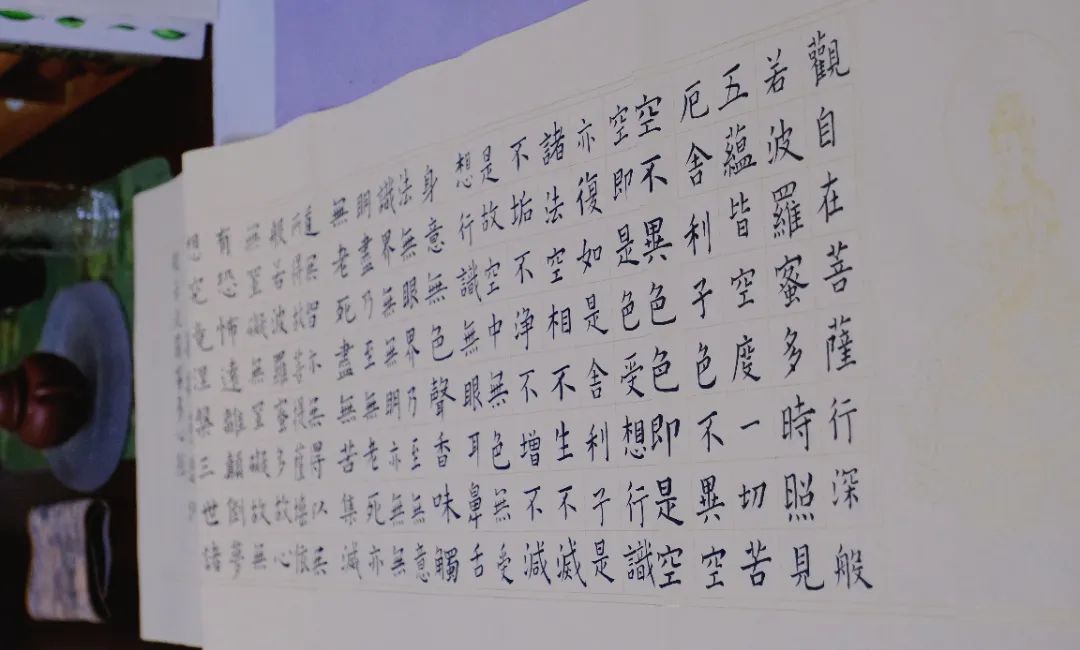 觀自在菩薩行深般
若波羅蜜多時照見
五蘊皆空度一切苦
厄舍利子色不異空
空不異色色即是空
空即是色受想行識
亦復如是舍利子是
諸法空相不生不滅
不垢不浄不增不減
是故空中無色無受
想行識無眼耳鼻舌
身意無色聲香味觸
法無眼界乃至無意
識界無無明亦無無
明盡乃至無老死亦
無老死盡無苦集滅
道無智亦無得以無
所得故菩提薩埵依
般若波羅蜜多故心
無罣礙無罣礙故無
有恐怖遠離顛倒夢
想究竟涅槃三世諸